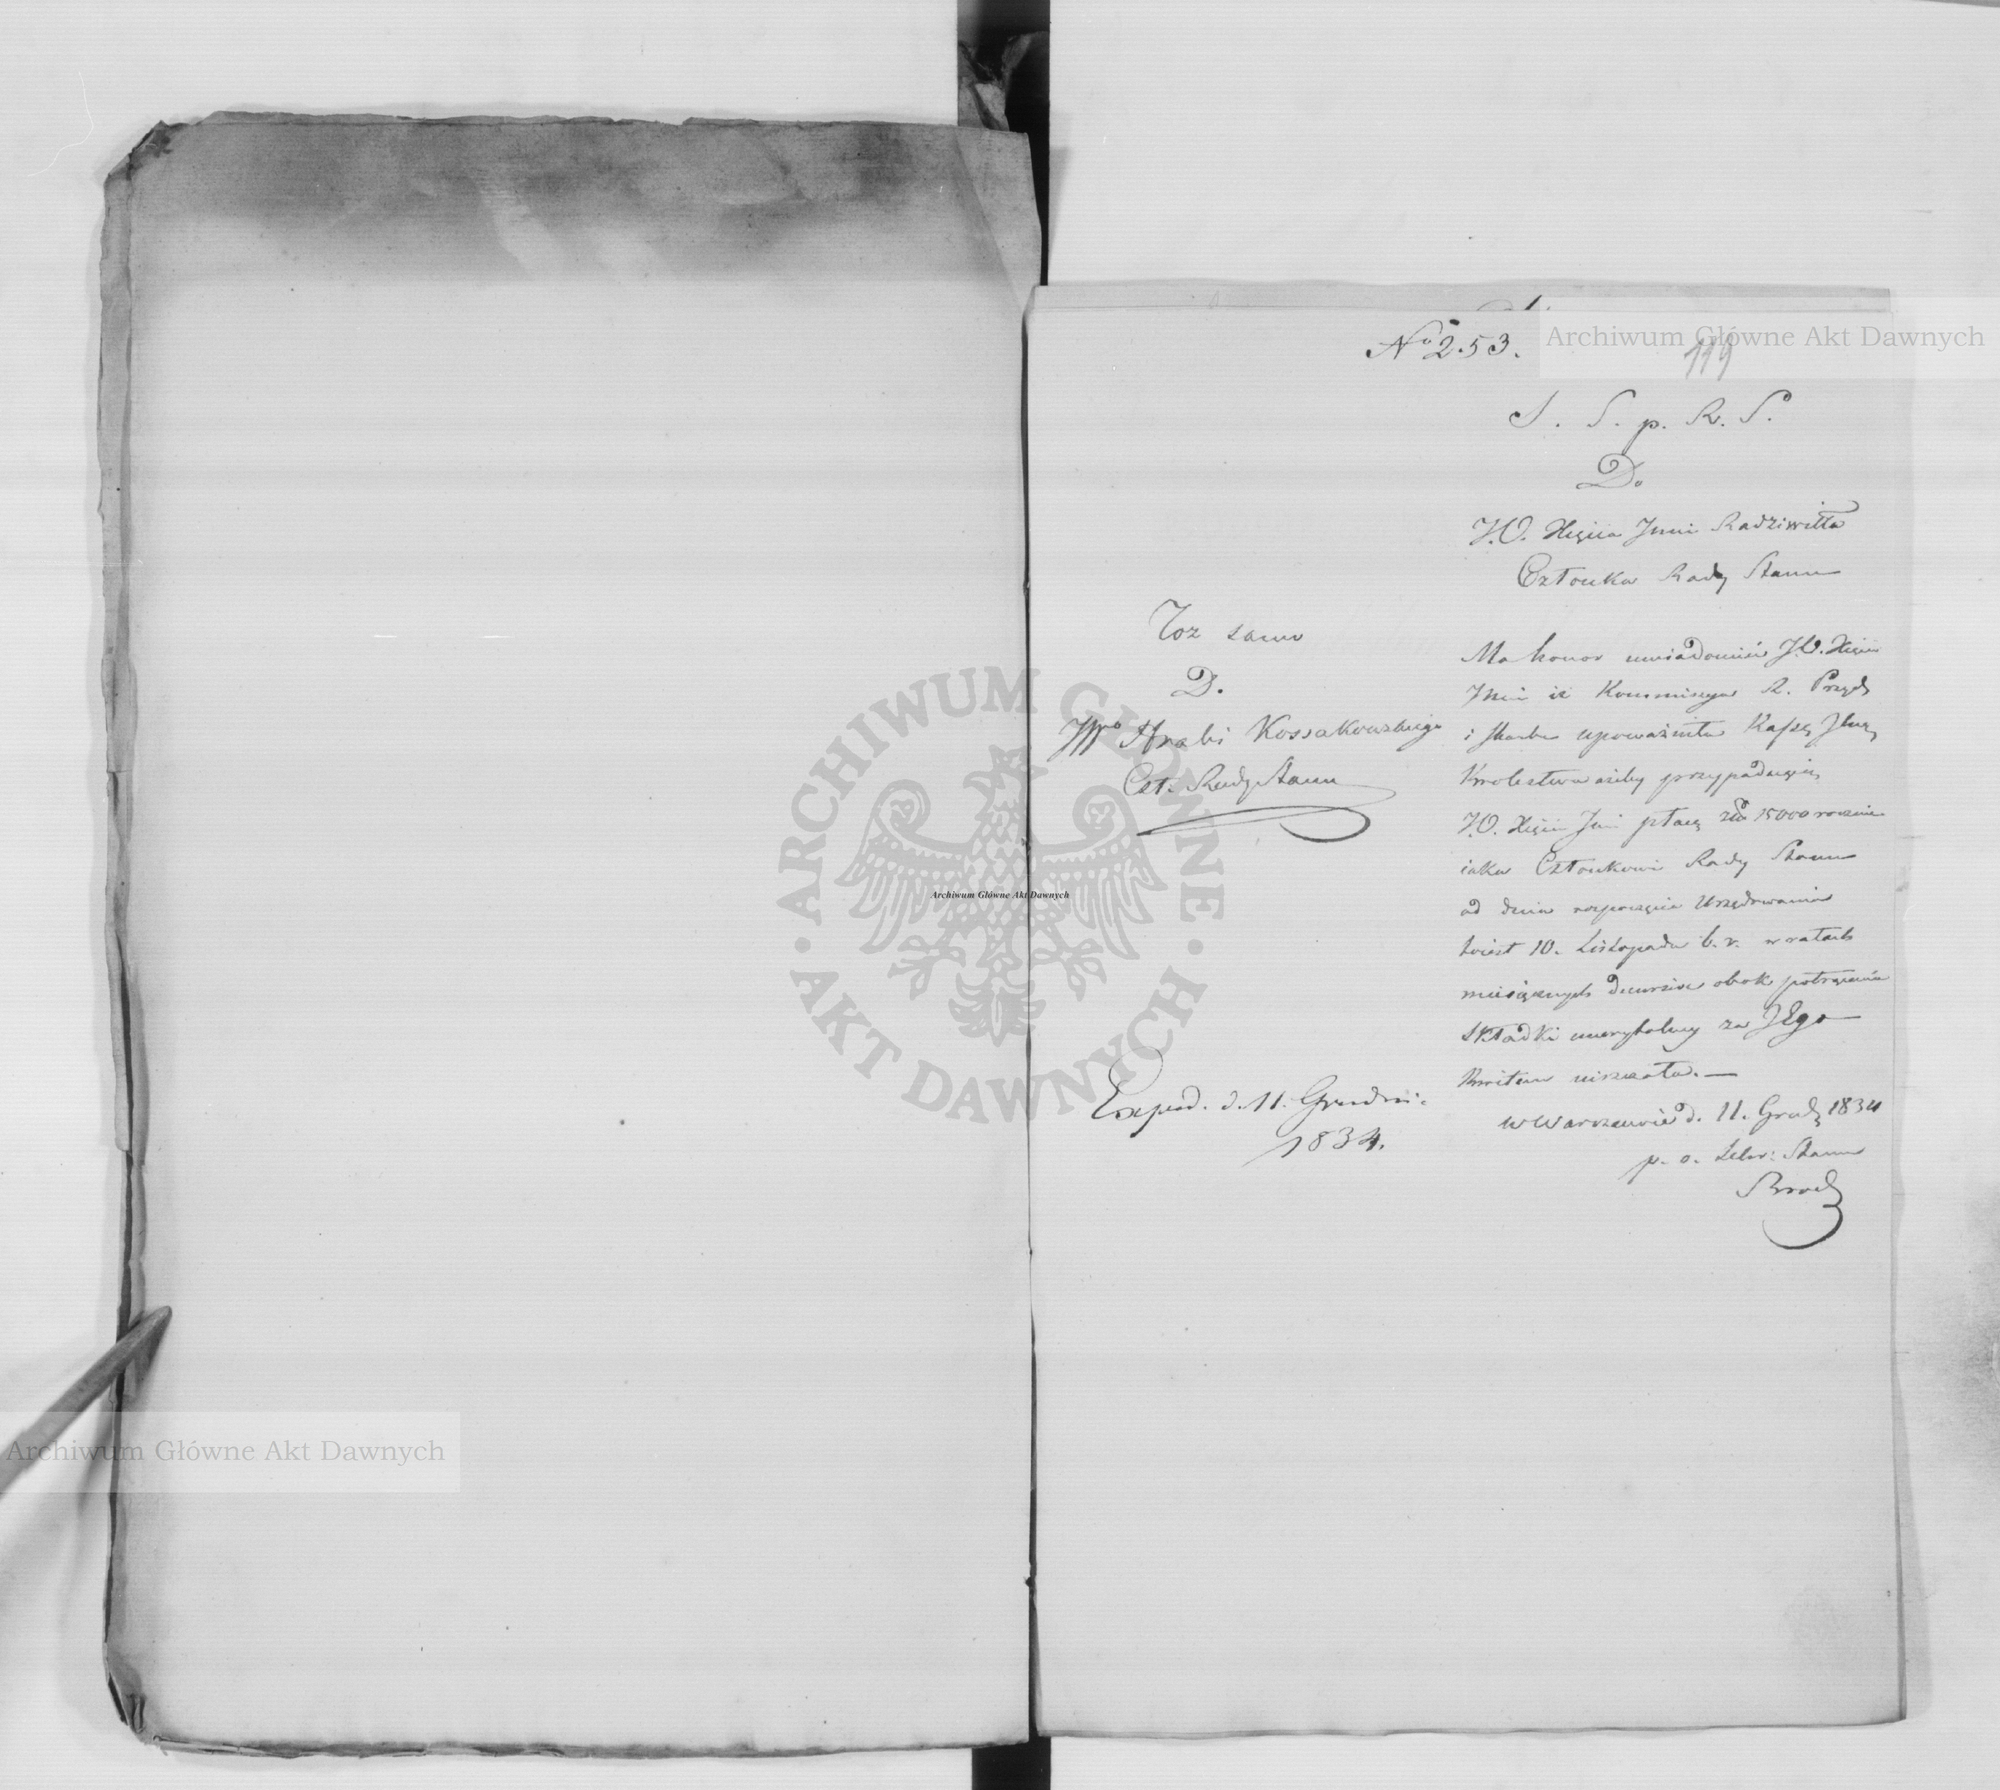 Nº 253.
119
S. S. p. R. S.
Do
J.O. Xięcia Jmci Radziwiłła
Członka Rady Stanu
Ma honor uwiadomić J.O. Xięcia
Jmci iż Kommissya R. Przych
i Skarbu upoważniła Kassę Głną
Krolestwa ażeby przypadaiącą
J.O. Xięciu Jmci płacę złp 15000 rocznie
iako Członkowi Rady Stanu
od dnia rozpoczęcia Urzędowania
to iest 10. Listopada b. r. w ratach
miesięcznych decursive obok potrącenia
składki emerytalney za JEgo
Kwitem uiszczała. —
w Warszawie d. 11. Grud 1834
p. o. Sekr: Stanu
Toż samo
D.
JWo Hrabi Kossakowskiego
Czł: Rady Stanu
Exped. d. 11. Grudni.
1834.
Archiwum Główne Akt Dawnych
Archiwum Główne Akt Dawnych
Archiwum Główne Akt Dawnych
ARCHIWUM GŁÓWNE AKT DAWNYCH